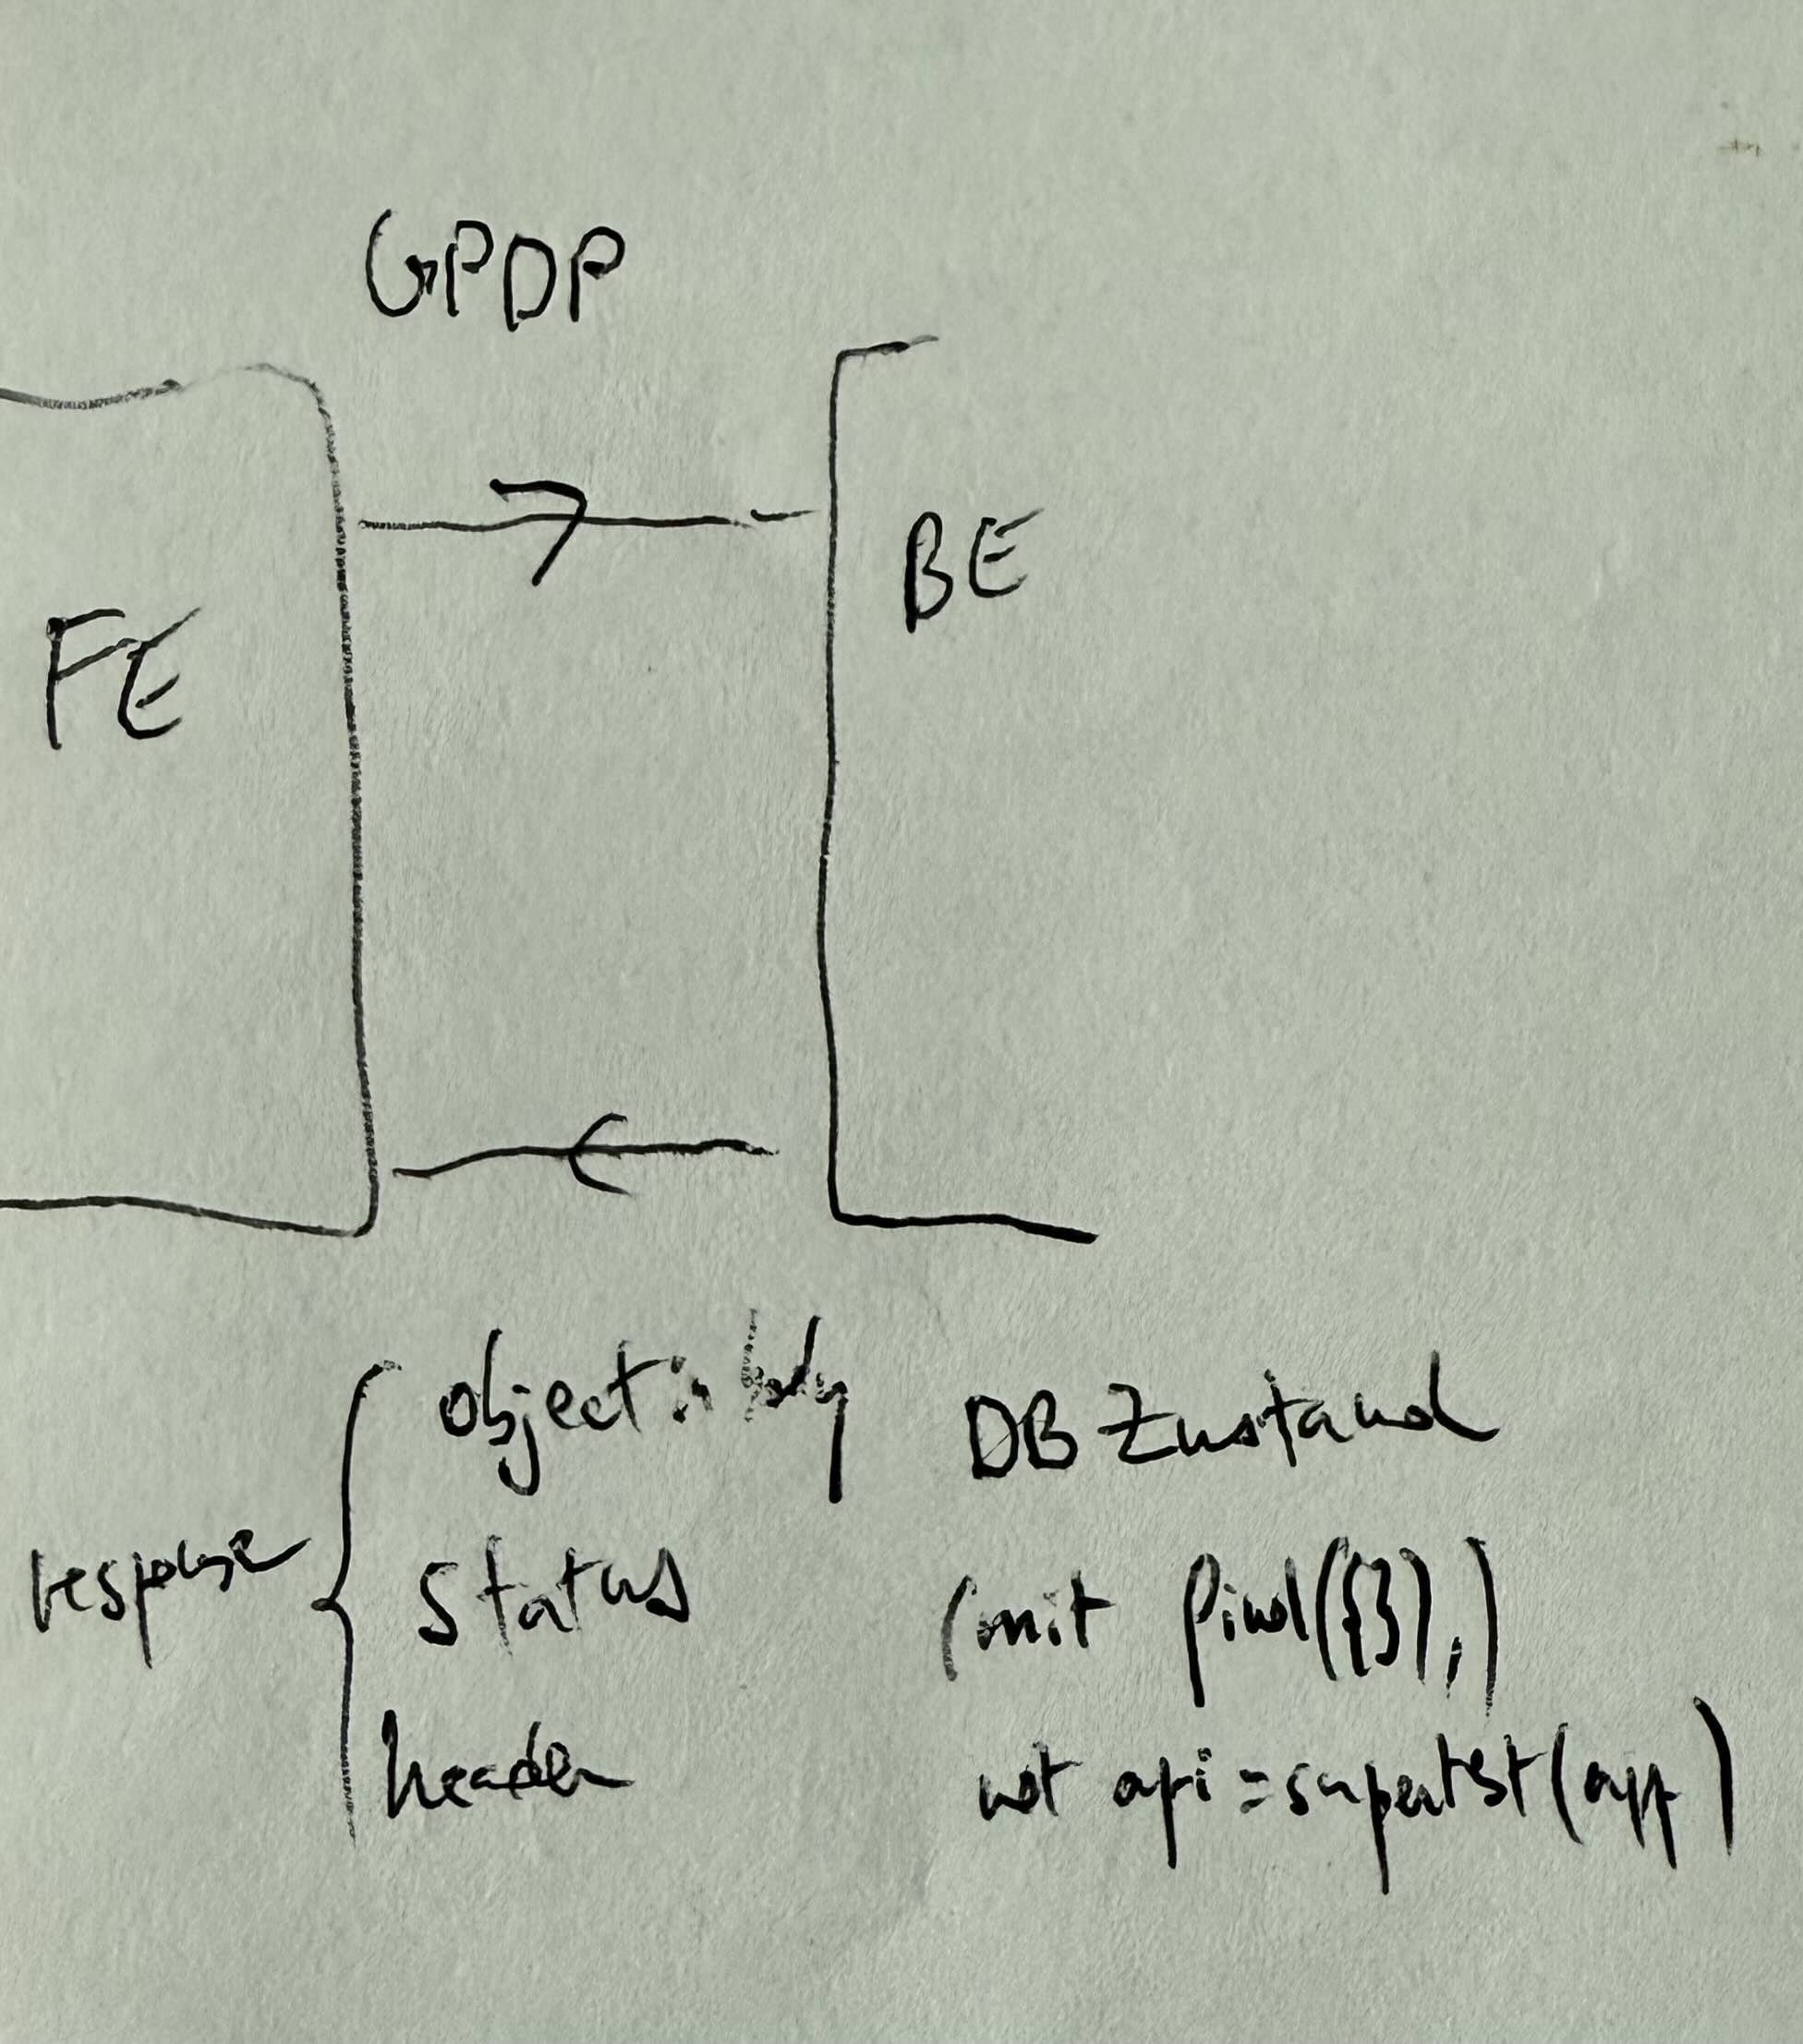 GPDP
FE
BE
response
object in body
status
header
DB Zustand
(mit find({});)
not api = supertest(app)